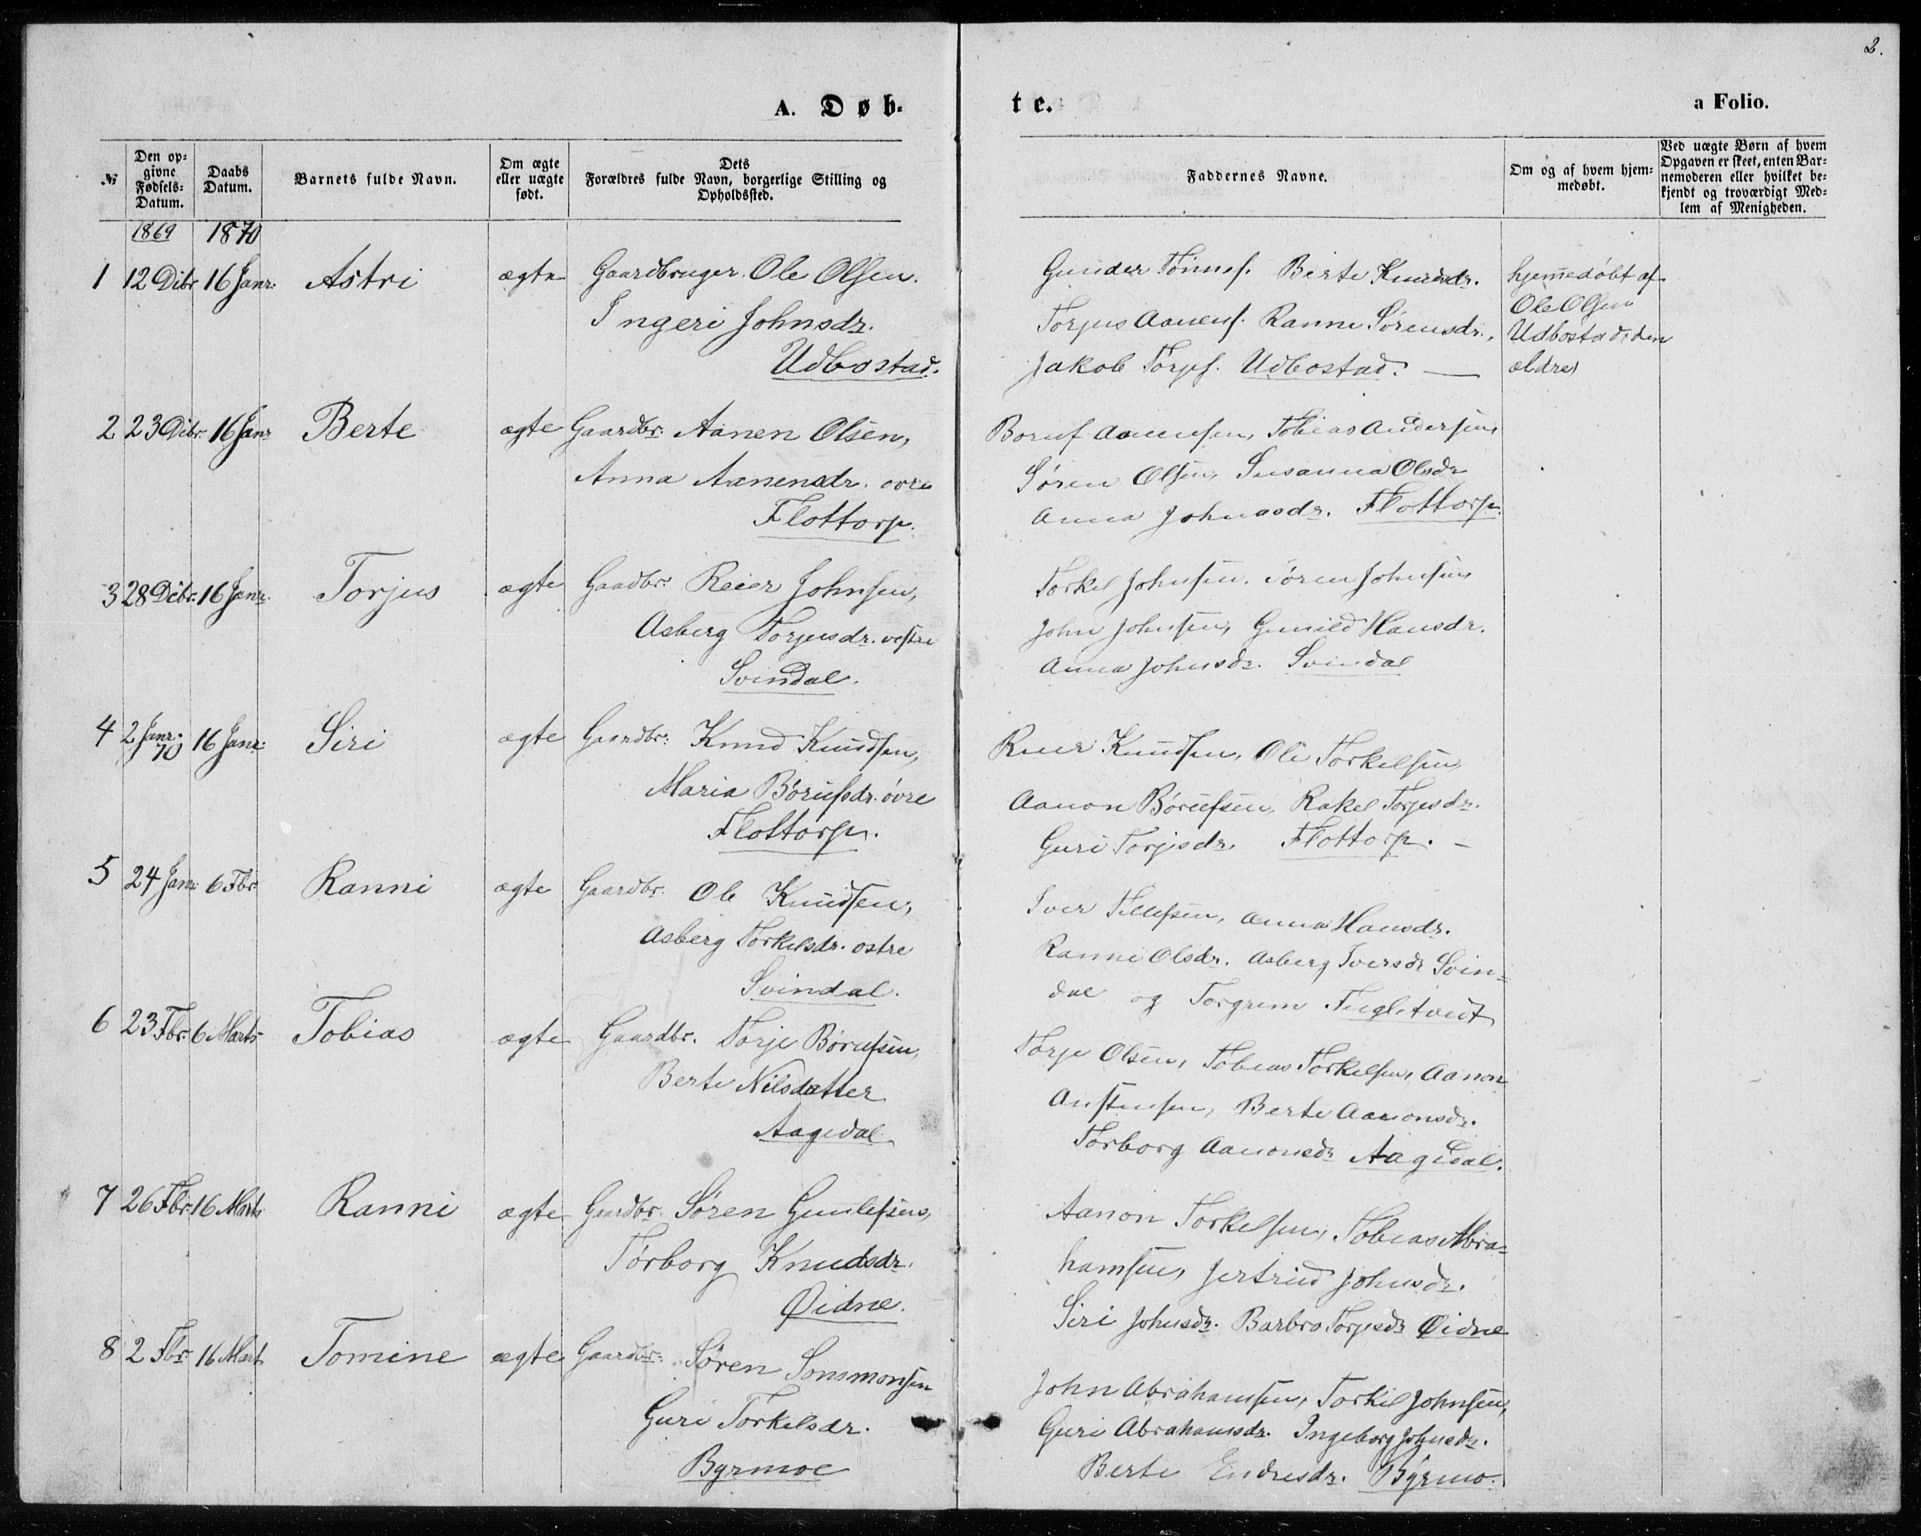 2.
A. Døb-
te.
a Folio.
№
Den op-
givne
Fødsels-
Datum.
Daabs
Datum.
Barnets fulde Navn.
Om ægte
eller uægte
født.
Dets
Forældres fulde Navn, borgerlige Stilling og
Opholdssted.
Faddernes Navne.
Om og af hvem hjem-
medøbt.
Ved uægte Børn af hvem
Opgaven er skeet, enten Bar-
nemoderen eller hvilket be-
kjendt og troværdigt Med-
lem af Menigheden.
1869
1870
1 12 Dibr 16 Janr: Astri ægte Gaardbruger. Ole Olsen.
Ingeri Johnsdr.
Udbostad.
Gunder Berte Knudsdr.
Torjus Aanens. Ranni Sørensdr.,
Jakob Torjs. Udbostad. —
hjemedøbt af
Ole Olsen
Udbostad, den
ældre
2 23 Dibr. 16 Janr Berte ægte Gaardbr: Aanen Olsen,
Anna Aanensdr. øvre
Flottorp.
Børuf Aanensen, Tobias Andersen,
Søren Olsen, Susanna Olsdr
Anna Johnasdr. Flottorp.
3 28 Dibr. 16 Janr. Torjus ægte Gaadbr: Reier Johnsen,
Asberg Torjusdr. vestre
Svindal.
Torkel Johnsen, Søren Johnsen
John Johnsen, Gunild Hansdr.
Anna Johnsdr. Svindal
4 2 Janr. 70 16 Janr: Siri ægte Gaardbr: Knud Knudsen,
Maria Børufsdr. øvre
Flottorp.
Reier Knudsen, Ole Torkelsen,
Aanon Børufsen, Rakel Torjesdr.
Guri Torjisdr. Flottorp. —
5 24 Janr 6 Fbr Ranni ægte Gaardbr. Ole Knudsen,
Asberg Torkelsdr. østre
Svindal.
Iver Tellefsen, Anna Hansdr.
Ranni Olsdr. Asberg Iversdr Svin-
dal og Torgrim Fuglestvedt
6 23 Fbr. 6 Marts Tobias ægte Gaardbr. Torje Børufsen,
Berte Nilsdatter
Aagedal
Torje Olsen, Tobias Torkelsen, Aanon
Austensen, Berte Aanonsdr.
Torborg Aanonsdr Aagedal.
7 26 Fbr. 16 Marts Ranni ægte Gaardbr. Søren Gunlefsen,
Torborg Knudsdr.
Øidne.
Aanon Torkelsen, Tobias Abra-
hamsen, Jertrud Johnsdr.
Siri Johnsdr. Barbro Torjesdr Øidne
8 2 Fbr 16 Mart Tomine ægte Gaardbr: Søren Sonsmonsen
Guri Torkelsdr.
Byrmoe
John Abrahamsen, Torkil Johnsen,
Guri Abrahamsdr. Ingeborg Johnsdr.
Berte Endresdr. Byrmo.